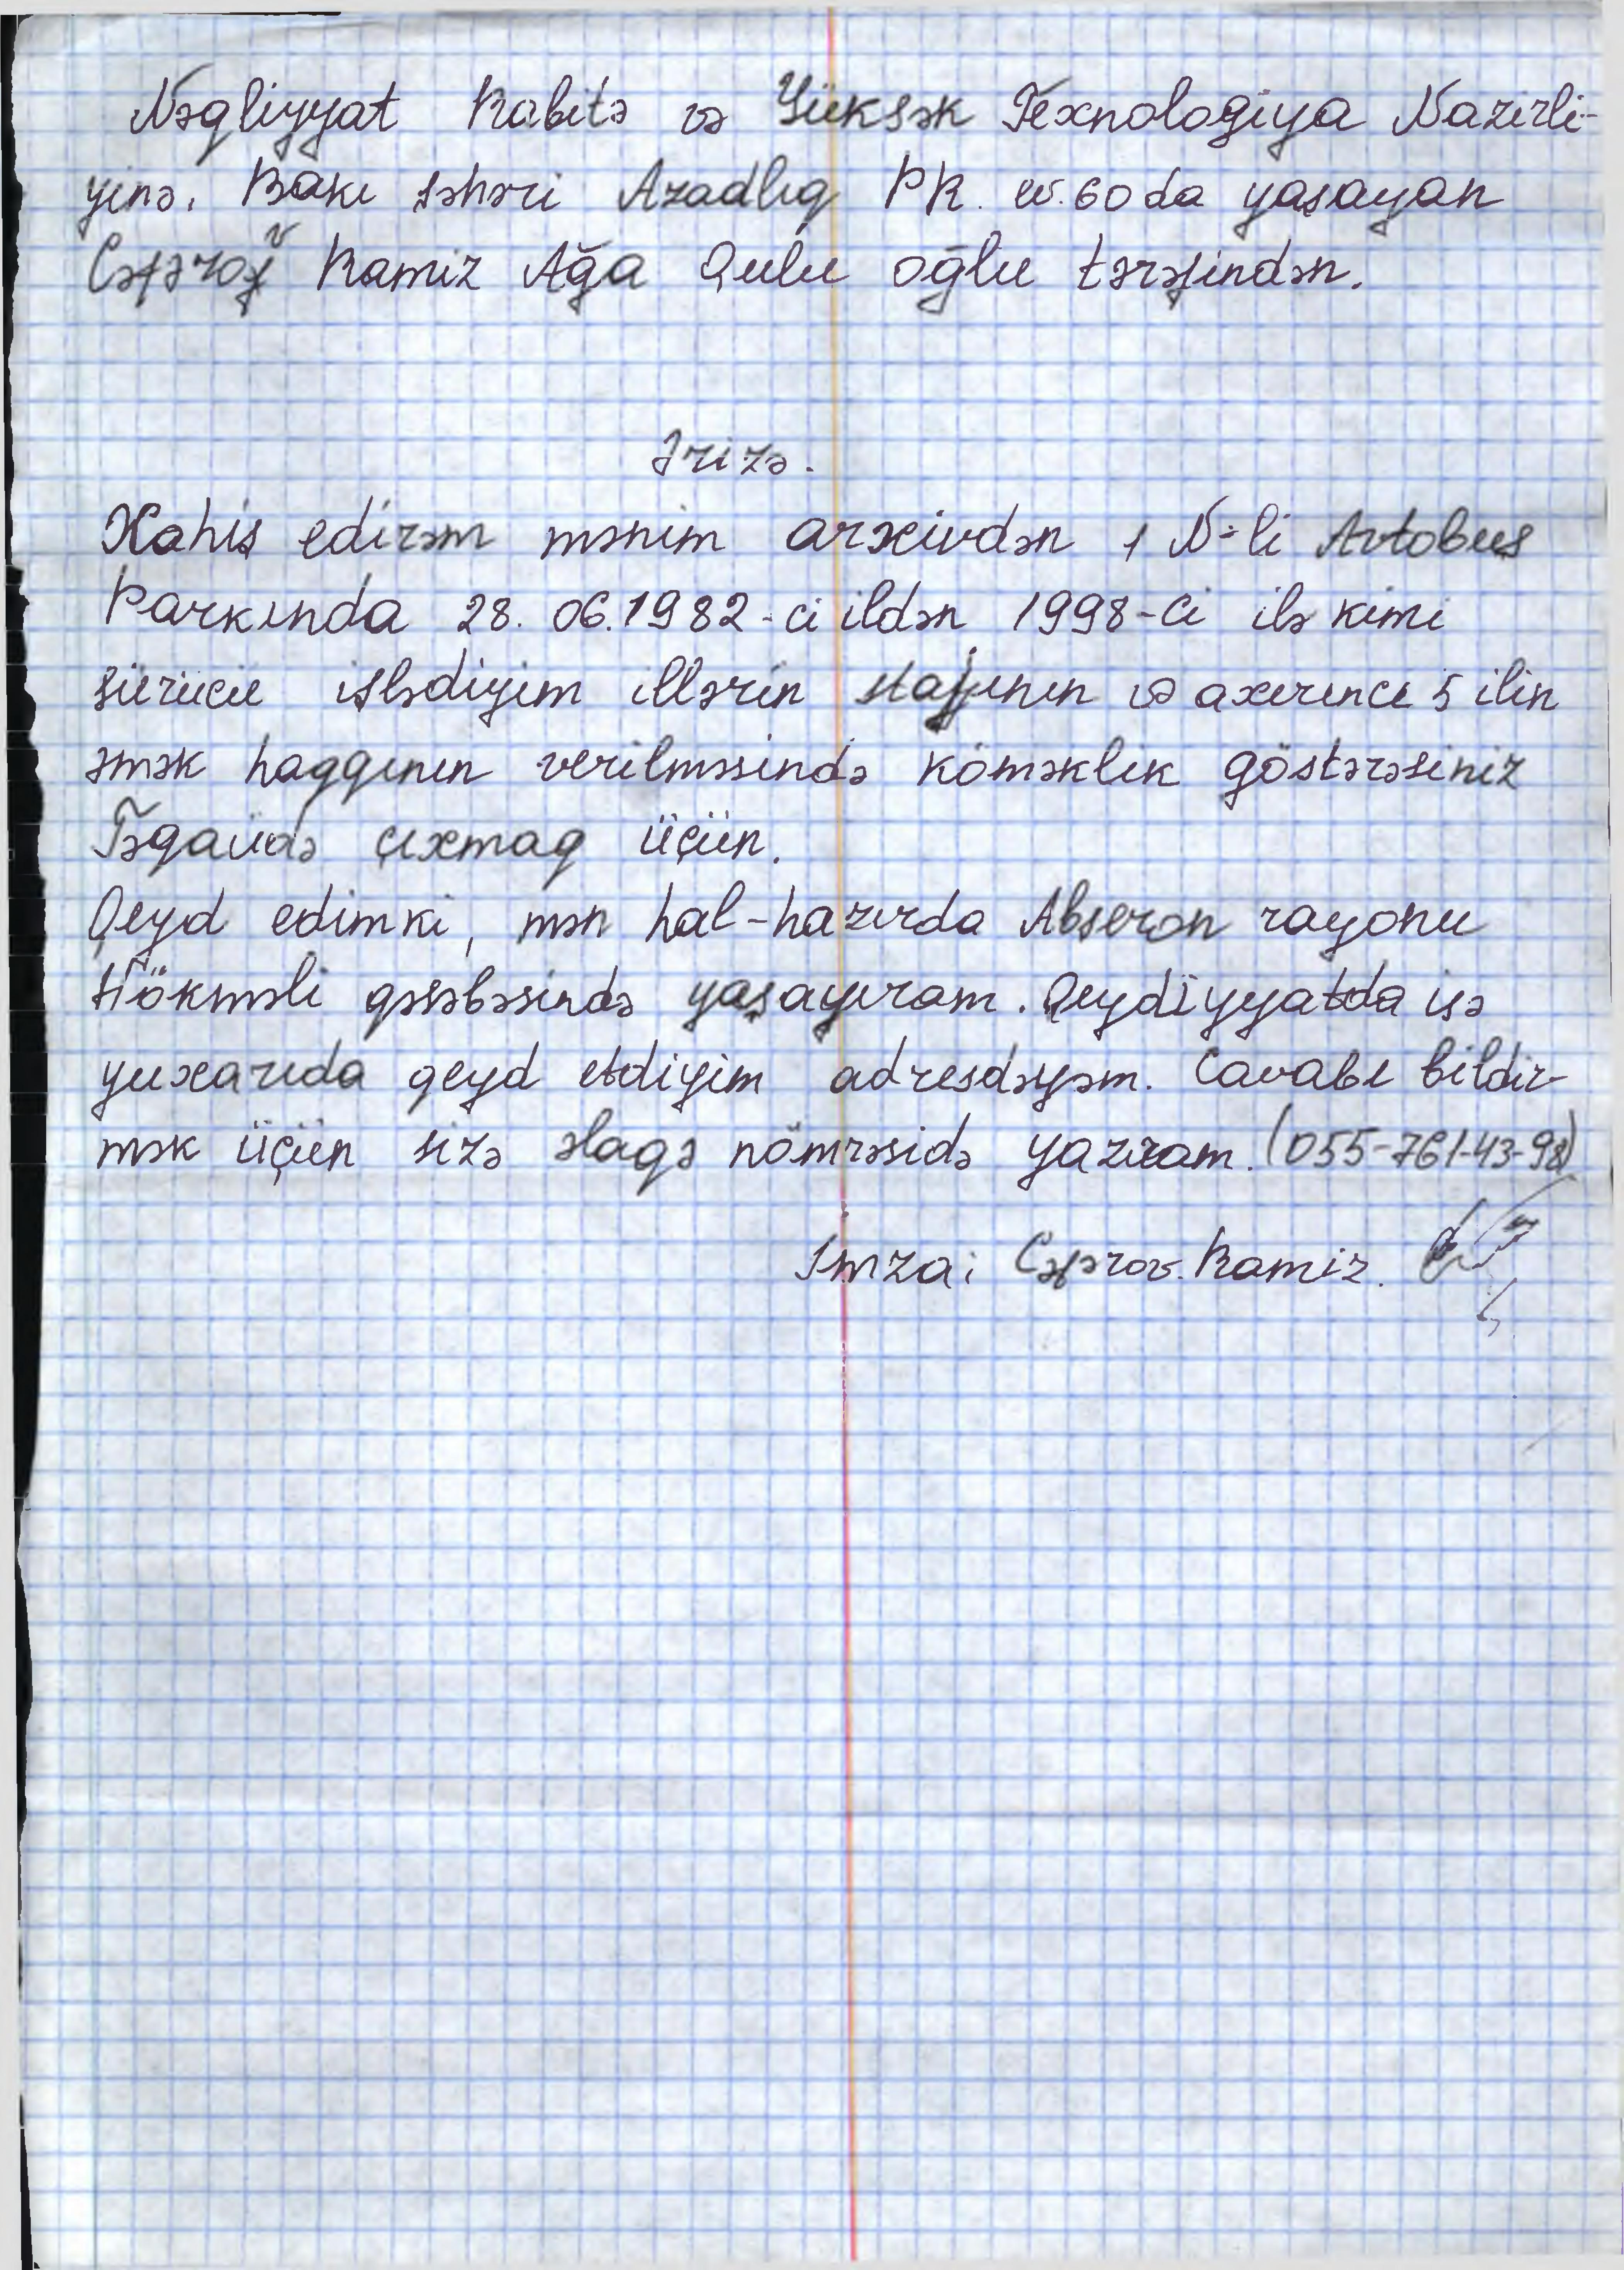 Nəqliyyat Rabitə və Yüksək Texnologiya Nazirli-
yinə. Bakı şəhəri Azadlıq PR. ev.60 da yaşayan
Cəfərov Ramiz Ağa Qulu oğlu tərəfindən.
Ərizə.
Xahiş edirəm mənim arxivdən 1 N-li Avtobus
Parkında 28.06.1982-ci ildən 1998-ci ilə kimi
sürücü işlədiyim illərin stajının və axırıncı 5 ilin
əmək haqqının verilməsində köməklik göstərəsiniz
Təqaüdə çıxmaq üçün.
Qeyd edimki, mən hal-hazırda Abşeron rayonu
Hökməli qəsəbəsində yaşayıram. Qeydiyyatda isə
yuxarıda qeyd etdiyim adresdəyəm. Cavabı bildir-
mək üçün sizə əlaqə nömrəsidə yazıram. (055-761-43-98)
İmza: Cəfərov. Ramiz.